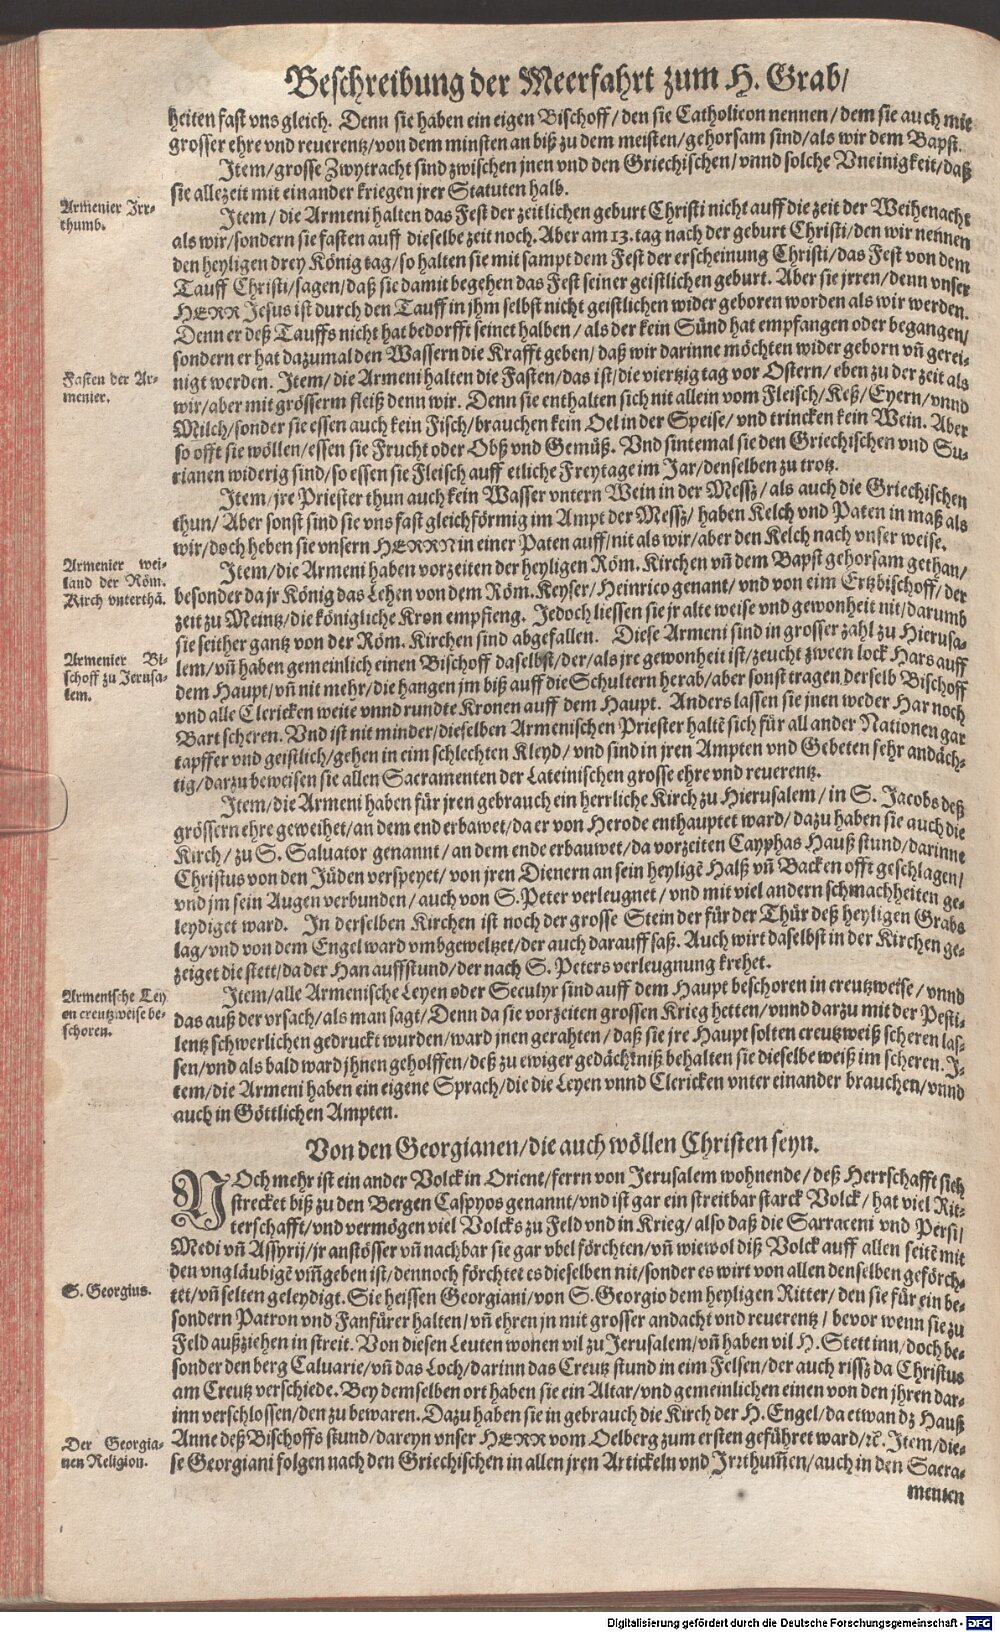 Beschreibung der Meerfahrt zum H. Grab/
heiten fast vns gleich. Denn sie haben ein eigen Bischoff/ den sie Catholicon nennen/ dem sie auch mit
grosser ehre vnd reuerentz/ von dem minsten an biß zu dem meisten/ gehorsam sind/ als wir dem Bapst.
Item/ grosse Zwytracht sind zwischen jnen vnd den Griechischen/ vnnd solche Vneinigkeit/ daß
sie allezeit mit einander kriegen jrer Statuten halb.
Armenier Irr-
thumb.
Item/ die Armeni halten das Fest der zeitlichen geburt Christi nicht auff die zeit der Weihenacht
als wir/ sondern sie fasten auff dieselbe zeit noch. Aber am 13. tag nach der geburt Christi/ den wir nennen
den heyligen drey König tag/ so halten sie mit sampt dem Fest der erscheinung Christi/ das Fest von dem
Tauff Christi/ sagen/ daß sie damit begehen das Fest seiner geistlichen geburt. Aber sie jrren/ denn vnser
HERR Jesus ist durch den Tauff in jhm selbst nicht geistlichen wider geboren worden als wir werden.
Denn er deß Tauffs nicht hat bedorfft seinet halben/ als der kein Sünd hat empfangen oder begangen/
sondern er hat dazumal den Wassern die Krafft geben/ daß wir darinne möchten wider geborn vñ gerei-
Fasten der Ar-
menier.
nigt werden. Item/ die Armeni halten die Fasten/ das ist/ die viertzig tag vor Ostern/ eben zu der zeit als
wir/ aber mit grösserm fleiß denn wir. Denn sie enthalten sich nit allein vom Fleisch/ Keß/ Eyern/ vnnd
Milch/ sonder sie essen auch kein Fisch/ brauchen kein Oel in der Speise/ vnd trincken kein Wein. Aber
so offt sie wöllen/ essen sie Frucht oder Obß vnd Gemüß. Vnd sintemal sie den Griechischen vnd Su-
rianen widerig sind/ so essen sie Fleisch auff etliche Freytage im Jar/ denselben zu trotz.
Item/ jre Priester thun auch kein Wasser vntern Wein in der Messz/ als auch die Griechischen
thun/ Aber sonst sind sie vns fast gleichförmig im Ampt der Messz/ haben Kelch vnd Paten in maß als
wir/ doch heben sie vnsern HERRN in einer Paten auff/ nit als wir/ aber den Kelch nach vnser weise.
Armenier wei-
land der Röm.
Kirch vnterthā.
Item/ die Armeni haben vorzeiten der heyligen Röm. Kirchen vñ dem Bapst gehorsam gethan/
besonder da jr König das Lehen von dem Röm. Keyser/ Heinrico genant/ vnd von eim Ertzbischoff/ der
zeit zu Meintz/ die königliche Kron empfieng. Jedoch liessen sie jr alte weise vnd gewonheit nit/ darumb
sie seither gantz von der Röm. Kirchen sind abgefallen. Diese Armeni sind in grosser zahl zu Hierusa-
Armenier Bi-
schoff zu Jerusa-
lem.
lem/ vñ haben gemeinlich einen Bischoff daselbst/ der/ als jre gewonheit ist/ zeucht zween lock Hars auff
dem Haupt/ vñ nit mehr/ die hangen jm biß auff die Schultern herab/ aber sonst tragen derselb Bischoff
vnd alle Clericken weite vnnd rundte Kronen auff dem Haupt. Anders lassen sie jnen weder Har noch
Bart scheren. Vnd ist nit minder/ dieselben Armenischen Priester haltē sich für all ander Nationen gar
tapffer vnd geistlich/ gehen in eim schlechten Kleyd/ vnd sind in jren Ampten vnd Gebeten sehr andäch-
tig/ darzu beweisen sie allen Sacramenten der Lateinischen grosse ehre vnd reuerentz.
Item/ die Armeni haben für jren gebrauch ein herrliche Kirch zu Hierusalem/ in S. Jacobs deß
grössern ehre geweihet/ an dem end erbawet/ da er von Herode enthauptet ward/ dazu haben sie auch die
Kirch/ zu S. Saluator genannt/ an dem ende erbauwet/ da vorzeiten Cayphas Hauß stund/ darinne
Christus von den Jüden verspeyet/ von jren Dienern an sein heyligē Halß vñ Backen offt geschlagen/
vnd jm sein Augen verbunden/ auch von S. Peter verleugnet/ vnd mit viel andern schmachheiten ge-
leydiget ward. In derselben Kirchen ist noch der grosse Stein der für der Thür deß heyligen Grabs
lag/ vnd von dem Engel ward vmbgeweltzet/ der auch darauff saß. Auch wirt daselbst in der Kirchen ge-
zeiget die stett/ da der Han auffstund/ der nach S. Peters verleugnung krehet.
Armenische Ley
en creutzweise be-
schoren.
Item/ alle Armenische Leyen oder Seculyr sind auff dem Haupt beschoren in creutzweise/ vnnd
das auß der vrsach/ als man sagt/ Denn da sie vorzeiten grossen Krieg hetten/ vnnd darzu mit der Pesti-
lentz schwerlichen gedruckt wurden/ ward jnen gerahten/ daß sie jre Haupt solten creutzweiß scheren las-
sen/ vnd als bald ward jhnen geholffen/ deß zu ewiger gedächtniß behalten sie dieselbe weiß im scheren. I-
tem/ die Armeni haben ein eigene Sprach/ die die Leyen vnnd Clericken vnter einander brauchen/ vnnd
auch in Göttlichen Ampten.
Von den Georgianen/ die auch wöllen Christen seyn.
NOch mehr ist ein ander Volck in Orient/ ferrn von Jerusalem wohnende/ deß Herrschafft sich
strecket biß zu den Bergen Caspyos genannt/ vnd ist gar ein streitbar starck Volck/ hat viel Rit-
terschafft/ vnd vermögen viel Volcks zu Feld vnd in Krieg/ also daß die Sarraceni vnd Persi/
Medi vñ Assyrij/ jr anstösser vñ nachbar sie gar vbel förchten/ vñ wiewol diß Volck auff allen seitē mit
den vngläubigē vm̃geben ist/ dennoch förchtet es dieselben nit/ sonder es wirt von allen denselben geförch-
S. Georgius.
tet/ vñ selten geleydigt. Sie heissen Georgiani/ von S. Georgio dem heyligen Ritter/ den sie für ein be-
sondern Patron vnd Fanfürer halten/ vñ ehren jn mit grosser andacht vnd reuerentz/ bevor wenn sie zu
Feld außziehen in streit. Von diesen Leuten wonen vil zu Jerusalem/ vñ haben vil H. Stett inn/ doch be-
sonder den berg Caluarie/ vñ das Loch/ darinn das Creutz stund in eim Felsen/ der auch rissz da Christus
am Creutz verschiede. Bey demselben ort haben sie ein Altar/ vnd gemeinlichen einen von den jhren dar-
inn verschlossen/ den zu bewaren. Dazu haben sie in gebrauch die Kirch der H. Engel/ da etwan dz Hauß
Der Georgia-
nen Religion.
Anne deß Bischoffs stund/ dareyn vnser HERR vom Oelberg zum ersten geführet ward/ ꝛc. Item/ die-
se Georgiani folgen nach den Griechischen in allen jren Artickeln vnd Irrthum̃en/ auch in den Sacra-
menten
Digitalisierung gefördert durch die Deutsche Forschungsgemeinschaft - DFG